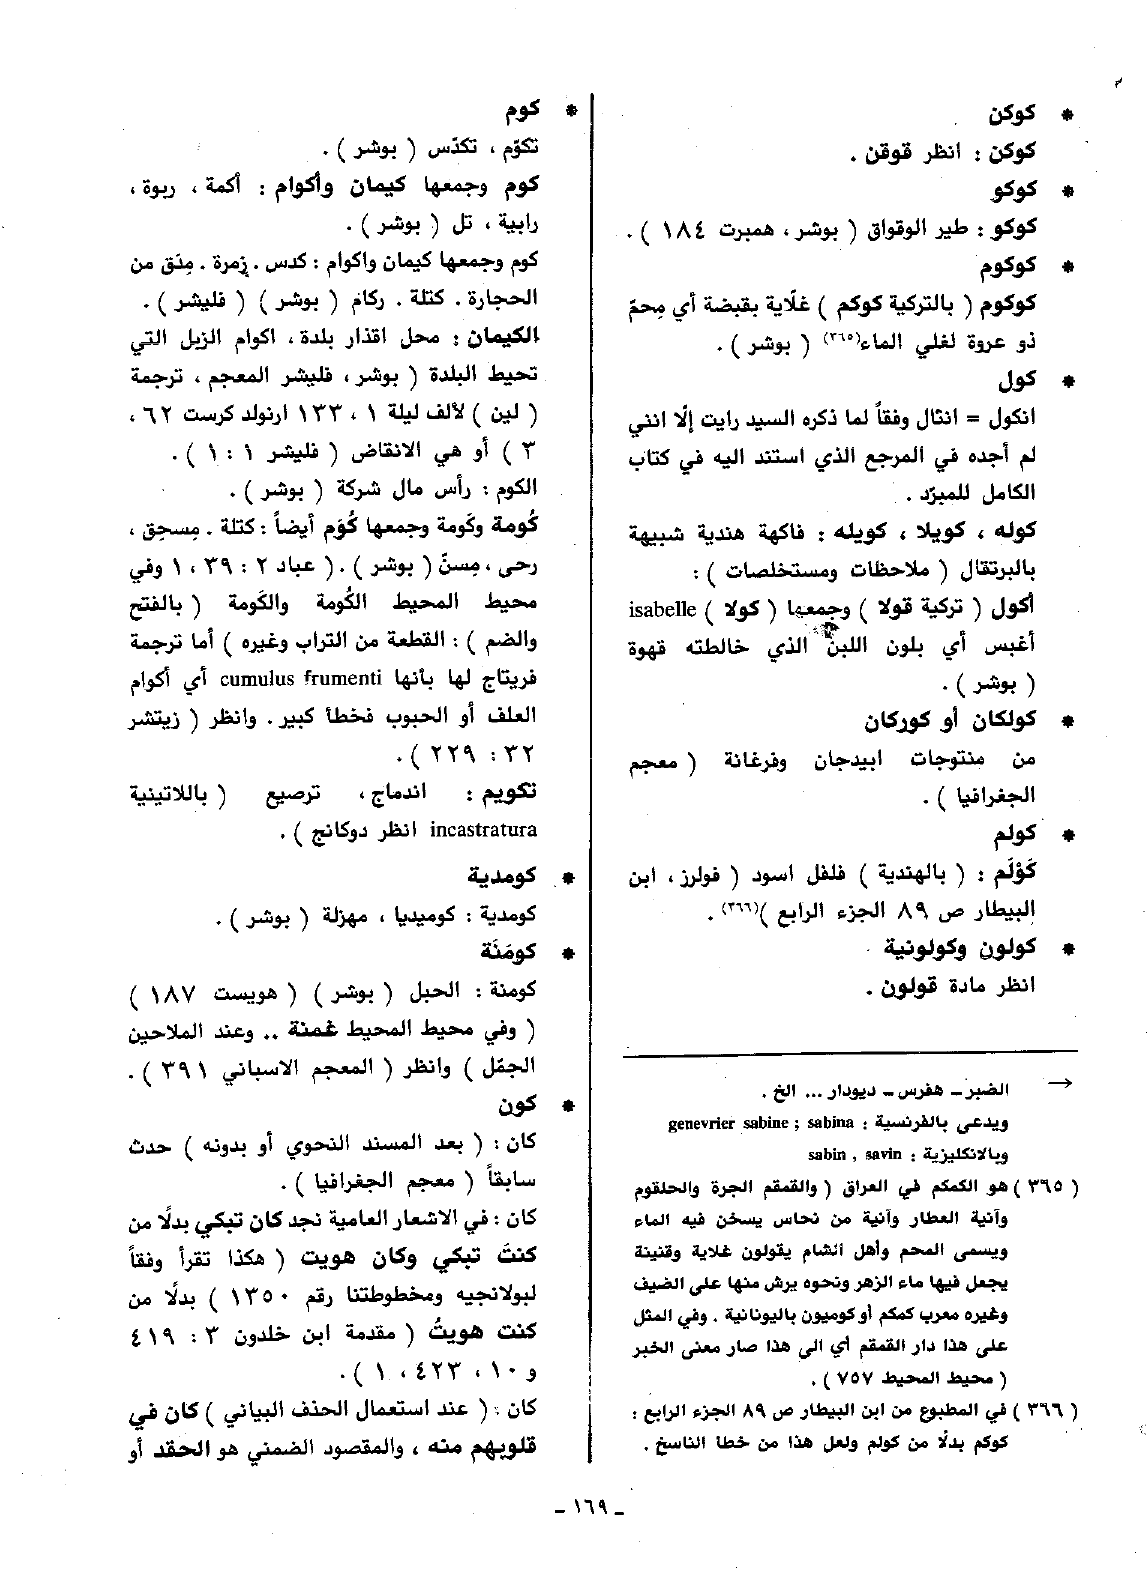 * كوكن
كوكن : انظر قوقن .
* كوكو
كوكو : طير الوقواق ( بوشر ، همبرت ١٨٤ ) .
* كوكوم
كوكوم ( بالتركية كوكم ) غلّاية بقبضة أي مِحمّ
ذو عروة لغلي الماء(٣٦٥) ( بوشر ) .
* كول
انكول = انثال وفقاً لما ذكره السيد رايت إلّا انني
لم أجده في المرجع الذي استند اليه في كتاب
الكامل للمبرّد .
كوله ، كويلا ، كويله : فاكهة هندية شبيهة
بالبرتقال ( ملاحظات ومستخلصات ) :
أكول ( تركية قولا ) وجمعها ( كولا ) isabelle
أغبس أي بلون اللبن الذي خالطته قهوة
( بوشر ) .
* كولكان أو كوركان
من منتوجات ابيدجان وفرغانة ( معجم
الجغرافيا ) .
* كولم
كَوْلَم : ( بالهندية ) فلفل اسود ( فولرز ، ابن
البيطار ص ٨٩ الجزء الرابع )(٣٦٦) .
* كولون وكولونية
انظر مادة قولون .
→ الضبر ـ هفرس ـ ديودار ... الخ .
ويدعى بالفرنسية : genevrier sabine ; sabina
وبالانكليزية : sabin , savin
( ٣٦٥ ) هو الكمكم في العراق ( والقمقم الجرة والحلقوم
وآنية العطار وآنية من نحاس يسخن فيه الماء
ويسمى المحم وأهل الشام يقولون غلاية وقنينة
يجعل فيها ماء الزهر ونحوه يرش منها على الضيف
وغيره معرب كمكم أو كوميون باليونانية . وفي المثل
على هذا دار القمقم أي الى هذا صار معنى الخبر
( محيط المحيط ٧٥٧ ) .
( ٣٦٦ ) في المطبوع من ابن البيطار ص ٨٩ الجزء الرابع :
كوكم بدلًا من كولم ولعل هذا من خطا الناسخ .
* كوم
تكوّم ، تكدّس ( بوشر ) .
كوم وجمعها كيمان وأكوام : أكمة ، ربوة ،
رابية ، تل ( بوشر ) .
كوم وجمعها كيمان واكوام : كدس . زمرة . مِتَق من
الحجارة . كتلة . ركام ( بوشر ) ( فليشر ) .
الكيمان : محل اقذار بلدة ، اكوام الزبل التي
تحيط البلدة ( بوشر ، فليشر المعجم ، ترجمة
( لين ) لألف ليلة ١ ، ١٣٣ ارنولد كرست ٦٢ ،
٣ ) أو هي الانقاض ( فليشر ١ : ١ ) .
الكوم : رأس مال شركة ( بوشر ) .
كُومة وكَومة وجمعها كُوَم أيضاً : كتلة . مِسحق ،
رحى ، مِسنّ ( بوشر ) . ( عباد ٢ : ٣٩ ، ١ وفي
محيط المحيط الكُومة والكَومة ( بالفتح
والضم ) : القطعة من التراب وغيره ) أما ترجمة
فريتاج لها بأنها cumulus frumenti أي أكوام
العلف أو الحبوب فخطأ كبير . وانظر ( زيتشر
٣٢ : ٢٢٩ ) .
تكويم : اندماج ، ترصيع ( باللاتينية
incastratura انظر دوكانج ) .
* كومدية
كومدية : كوميديا ، مهزلة ( بوشر ) .
* كومَنَة
كومنة : الحبل ( بوشر ) ( هويست ١٨٧ )
( وفي محيط المحيط غمنة .. وعند الملاحين
الجمّل ) وانظر ( المعجم الاسباني ٣٩١ ) .
* كون
كان : ( بعد المسند النحوي أو بدونه ) حدث
سابقاً ( معجم الجغرافيا ) .
كان : في الاشعار العامية نجد كان تبكي بدلًا من
كنتَ تبكي وكان هويت ( هكذا تقرأ وفقاً
لبولانجيه ومخطوطتنا رقم ١٣٥٠ ) بدلًا من
كنت هويتُ ( مقدمة ابن خلدون ٣ : ٤١٩
و ١٠ ، ٤٢٣ ، ١ ) .
كان : ( عند استعمال الحذف البياني ) كان في
قلوبهم منه ، والمقصود الضمني هو الحقد أو
ـ ١٦٩ ـ